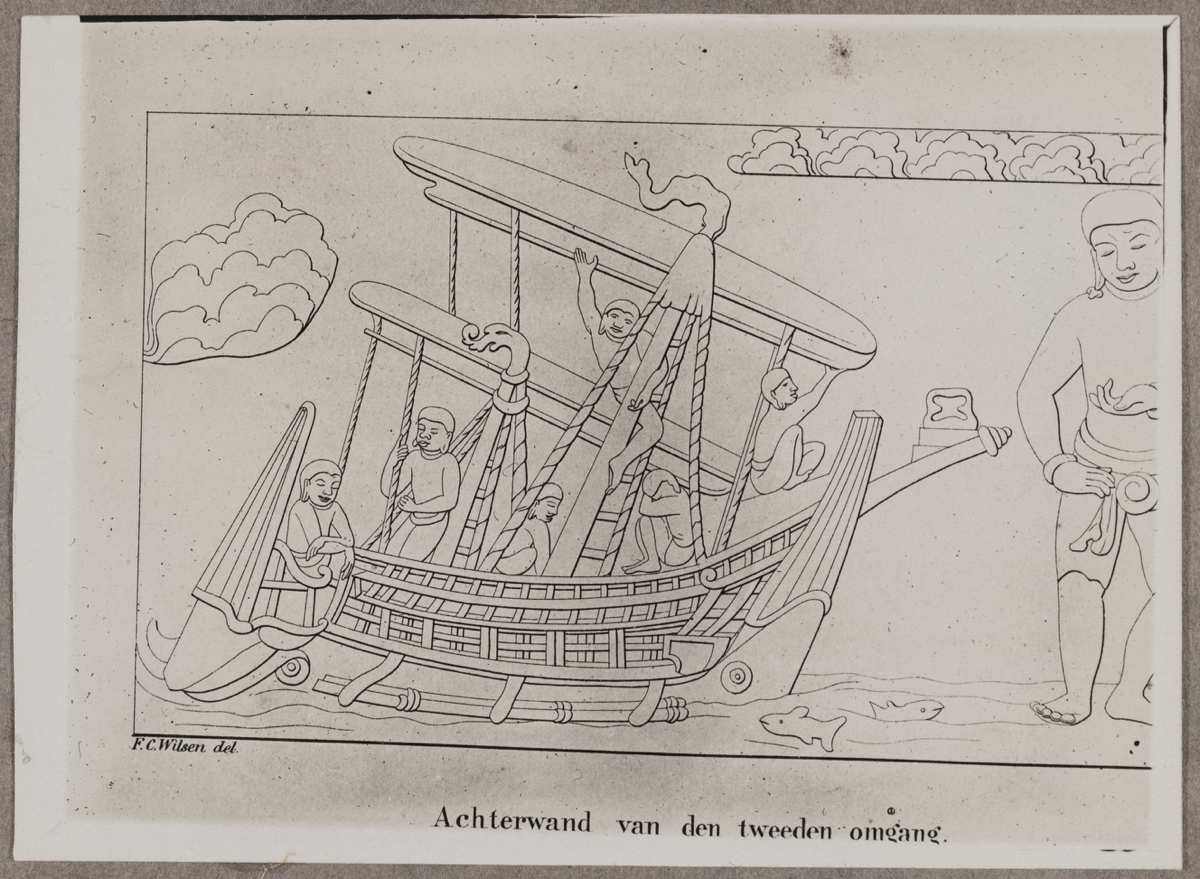 F. C. Wilsen del.
Achterwand van den tweeden omgang.